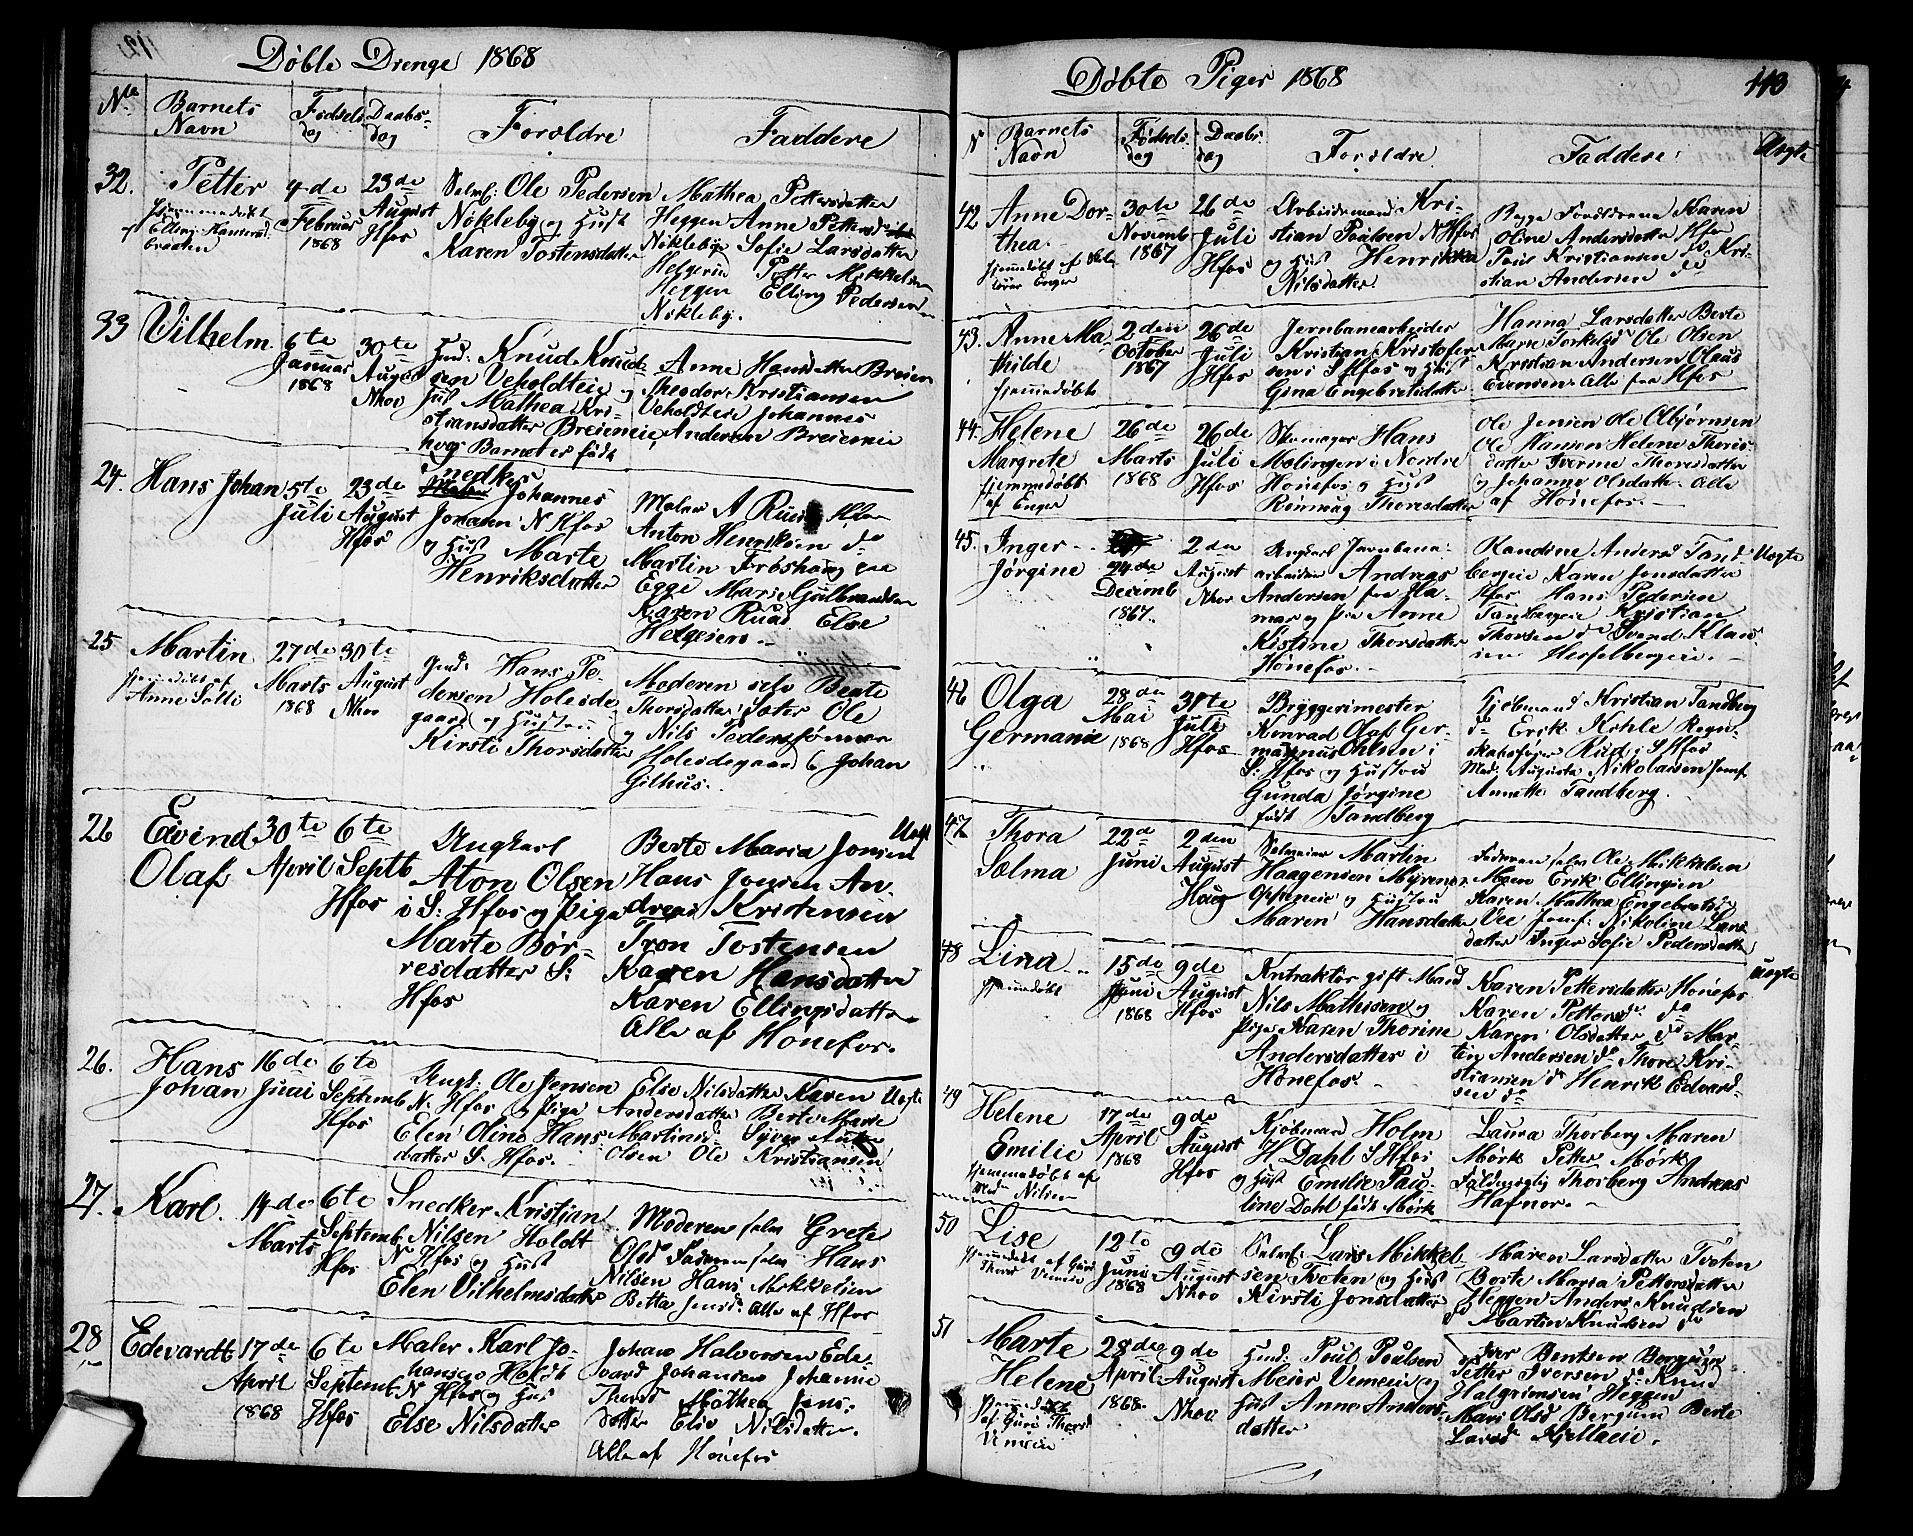 Døbte Drenge 1868
No
Barnets Navn
Fødsels dag
Daabs- dag
Forældre
Faddere
32.
Petter
Hjemmedøbt
af Elling
braaten
4de
Februar
1868
23de
August
Hfos
Selvei: Ole Pedersen
Nökleby og Hust
Karen Tostensdatter
Mathea Pettersdatter
Heggen Anne Pettersd
Nökleby Sofie Larsdatter
Petter Mikkelsen
Heggen Elling Pedersen
Nökleby.
33
Vilhelm
6te
Januar
1868
30te
August
Nhov
Husd: Knud Knud-
sen Veholdteie og
Hust Mathea Kri-
stiansdatter Breieneie
hvor Barnet er födt
Anne Hansdatter Breien
Theodor Kristiansen
Veholdteie Johannes
Andersen Breieneie
24.
Hans Johan
5te
Juli
23de
August
Hfos
Snedker
Johannes
Johann: N Hfos
og Hust Marte
Henriksdatter
Maler A Ruud Hfos
Anton Henriksen do
Martin Fröshaug paa
Egge Marie Gulbrandsen
Karen Ruud Else
Helgesen
25
Martin
Hjemmedöbt af
Anne Solli
27de
Marts
1868
30te
August
Nhov
Hans Pe-
dersen Holesde
gaard og Hustru
Kirsti Thorsdatter
Moderen selv Beate
Thorsdatter Sæter Ole
og Nils Pedersönner
Holesdegaard Johan
Gilhus.
26
Eivind
Olaf
30te
April
6te
Septb
Hfos
Ungkarl
Aton Olsen
i S: Hfos og Pige
Marte Bör-
resdatter S:
Hfos
Berte Maria Jonsen
Hans Jonsen An-
dreas Kristensen
Tron Tostensen
Karen Hansdatter
Karen Ellingsdatter
Alle af Hönefos.
Uegt
26.
Hans
Johan
16de
Juni
6te
Septemb
Hfos
Ungk: Ole Jensen
N. Hfos og Pige
Elen Oline Hans
datter S. Hfos.
Else Nilsdatter Karen
Andersdatter Berte Marie
Martinsd Syver
Olsen Ole Kristiansen
Uegte
27.
Karl.
14de
Marts
6te
Septemb
Hfos
Snedker Kristian
Nilsen Holdt
N Hfos og Hust
Elen Vilhelmsdatter
Moderen selv Grete
Olsd Faderen selv Hans
Nilsen Hans Mikkelsen
Betta Jensd: Alle af Hfos
28
Edevardt
17de
April
1868
6te
Septemb
Hfos
Maler Karl Jo-
hansen Holdt
N Hfos og Hust
Else Nilsdatter
Johan Halvorsen Ede-
vard Johansen Johanne
Thorsd Mathea Jens-
datter Else Nilsdatter.
Alle af Hönefos
Døbte Piger 1868
113
N
Barnets Navn
Fødsels dag
Daabs dag
Forældre
Faddere
Uegte
42.
Anne Dor-
thea.
Hjemmedöbt af
Enger
30te
Novemb
1867
26de
Juli
Hfos
Arbeidsmand Kri-
stian Poulsen NHfos
og Hust Henrikka
Nilsdatter.
Begge Forældrene Karen
Oline Andersdatter Hfos
Poul Kristiansen do Kri-
stian Andersen do
43.
Anne Ma-
thilde
Hjemmedöbt
2den
October
1867
26de
Juli
Hfos
Jernbanearbeider
Kristian Kristofer-
sen i S Hfos og Hust
Gina Engebretsdatter
Hanna Larsdatter Berte
Marie Torkelsd Ole Olsen
Kristian Andersen Olaus
Evensen. Alle fra Hfos
44.
Helene
Margrete
Hjemmedöbt
af Enger
26de
Marts
1868
26de
Juli
Hfos
Skomager Hans
Molingen i Nordre
Hönefos og Hust
Rönnaug Thoresdatter
Ole Jensen Ole Asbjörnsen
Ole Hansen Helene Thores-
datter Iverine Thoresdatter
og Johanne Olsdatter Alle
af Hönefos.
45.
Inger
Jörgine
24de
Decemb
1867.
2den
August
Nhov
Ungkarl Jernbane-
arbeider Andreas
Andersen fra Ha-
mar og Pige Anne
Kistine Thorsdatter
Hönefos.
Randine Andersd Tand-
bergeie Karen Jonsdatter
Hfos Hans Pedersen
Tandbergeie Kristian
Thorsen do Svend Klau
sen Hesselbergeie.
Uegte
46
Olga
Germanie
28de
Mai
1868
31te
Juli
Hfos
Bryggerimester
Konrad Olaf Ger-
manus Ohlsen i
S: Hfos og Hustru
Gunda Jörgine
födt Tandberg
Kjöbmand Kristian Tandberg
do Erik Kihle Regn-
skabsförer Rud i S Hfos
Mad. Augusta Nikolaisen Jomf.
Annette Tandberg.
47
Thora
Selma
22d
Juni
2den
August
Haug
Selveier Martin
Haagensen Myrene
og Hustru
Maren Hansdatter
Faderen selv Ole Mikkelsen
Moen Erik Ellingsen
Karen Mathea Engebretsd
Vee Jomf: Nikoline Lars
datter Inger Sofie Pedersdatter
48
Lina
Hjemmedöbt
15de
Juni
1868
9de
August
Hfos
Kntraktör gift Mand
Nils Mathisen og
Pige Karen Thorine
Andersdatter i
Hönefos.
Karen Pettersdatter Hönefos
Karen Pettersd. do
Karen Olsdatter do Mar-
tin Andersen do Thore Kri-
stiansen do Henrik Edvard-
sen do
Uegte
49
Helene
Emilie
Hjemmedöbt af
Mad Nilsen
17de
April
1868
9de
August
Hfos
Kjöbmand Holm
H Dahl S Hfos
og Hust Emilie Pau-
line Dahl födt Mörk
Laura Thorberg Maren
Mörk Petter Mörk
Fuldmægtig Thorberg Andreas
Hafnor.
50
Lise
Hjemmedöbt af Guri
Thorsd Vemeie
12te
Juni
1868
9de
August
Nhov
Selvei: Lars Mikkel-
sen Tveten og Hust
Kirsti Jonsdatter
Maren Larsdatter Tveten
Berte Maria Pettersdatter
Heggen Anders Knudsen
do Martin Knudsen do
51
Marte
Helene
Hjemmedöbt
af Guri Thorsd
Vemeie
28de
April
1868.
9de
August
Nhov
Husd: Poul Poulsen
Meier Vemeie og
Hust Anne Anders-
datter
Iver Bentsen Bergum
Petter Iversen do Knud
Halgrimsen Heggen
Mari Olsd Bergum Berte
Larsd Hjelleeie.